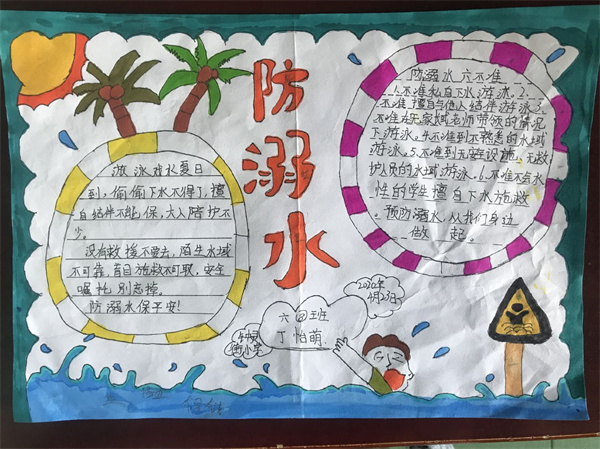 防溺水
游泳戏水夏日
到,偷偷下水不得了,擅
自结伴不能保,大人陪护不
少。
没有救援不要去,陌生水域
不可靠,盲目施救不可取,安全
嘱托别忘掉。
防溺水保平安!
防溺水六不准
1.不准私自下水游泳.2.
不准擅自与他人结伴游泳.3.
不准在无家长老师带领的情况
下游泳.4.不准到不熟悉的水域
游泳.5.不准到无安全设施、无救
护人员的水域游泳.6.不准不会水
性的学生擅自下水施救
。预防溺水,从我们身边
做起。
2020年
4月23日
六四班
丁怡萌
小学